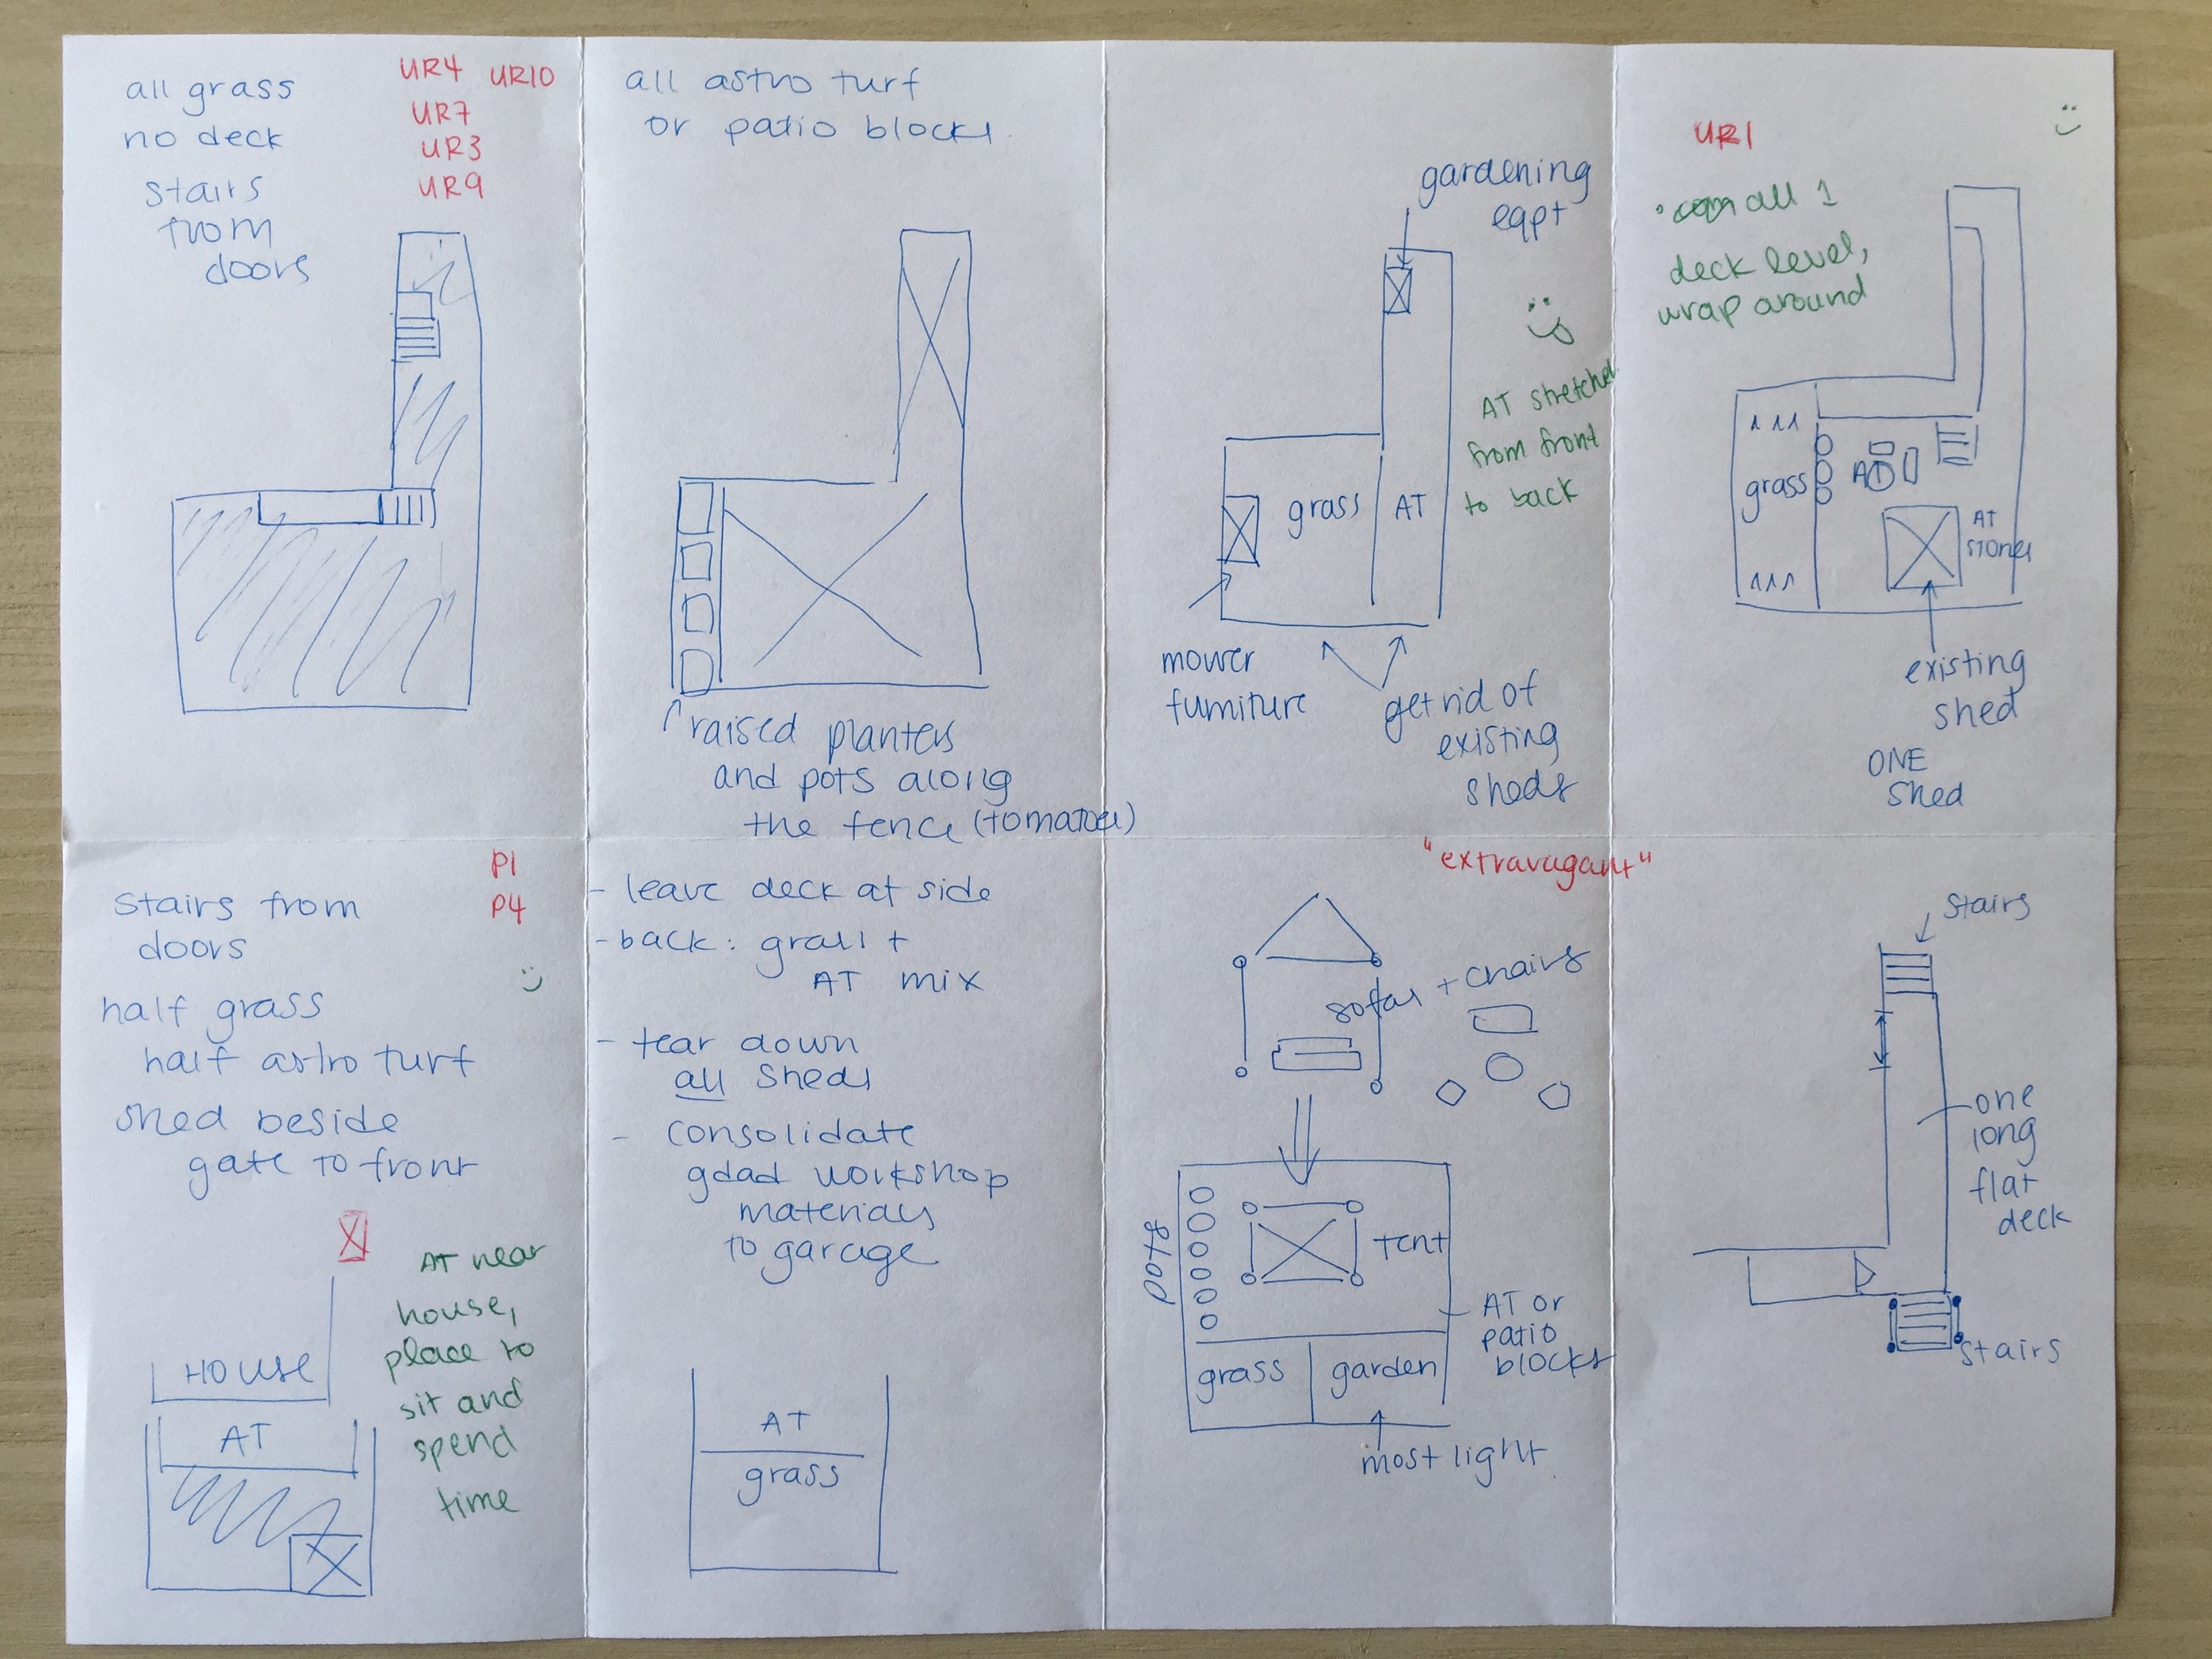 all grass
no deck
stairs
from
doors
UR4 UR10
UR7
UR3
UR9
all astro turf
or patio blocks.
raised planters
and pots along
the fence (tomatoes)
gardening
eqpt
AT stretched
from front
to back
grass
AT
mower
furniture
get rid of
existing
sheds
UR1
all 1
deck level,
wrap around
grass
AT
AT
stones
existing
shed
ONE
shed
P1
P4
stairs from
doors
half grass
half astro turf
shed beside
gate to front
AT near
house,
place to
sit and
spend
time
HOUSE
AT
- leave deck at side
- back: grass +
AT mix
- tear down
all sheds
- consolidate
gdad workshop
materials
to garage
AT
grass
"extravagant"
sofas + chairs
pots
tent
AT or
patio
blocks
grass
garden
most light
stairs
one
long
flat
deck
stairs